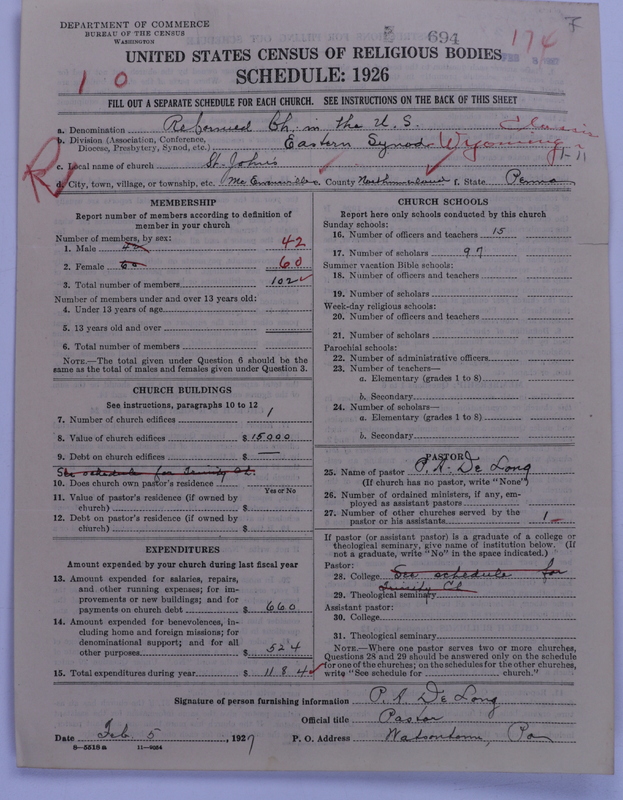 DEPARTMENT OF COMMERCE
BUREAU OF THE CENSUS
WASHINGTON
694
174
UNITED STATES CENSUS OF RELIGIOUS BODIES
SCHEDULE: 1926
1 0
FILL OUT A SEPARATE SCHEDULE FOR EACH CHURCH. SEE INSTRUCTIONS ON THE BACK OF THIS SHEET
a. Denomination Reformed Ch. in the U.S.
Classis
b. Division (Association, Conference, Diocese, Presbytery, Synod, etc.) Eastern Synod Wyoming
1-11
c. Local name of church St. John's
d. City, town, village, or township, etc. McEwensville e. County Northumberland f. State Penna
MEMBERSHIP
Report number of members according to definition of
member in your church
Number of members, by sex:
1. Male 42
2. Female 60
3. Total number of members 102
Number of members under and over 13 years old:
4. Under 13 years of age
5. 13 years old and over
6. Total number of members
NOTE.—The total given under Question 6 should be the
same as the total of males and females given under Question 3.
CHURCH BUILDINGS
See instructions, paragraphs 10 to 12
7. Number of church edifices 1
8. Value of church edifices $ 15000
9. Debt on church edifices $ —
See schedule for Trinity Ch.
10. Does church own pastor's residence
Yes or No
11. Value of pastor's residence (if owned by
church) $
12. Debt on pastor's residence (if owned by
church) $
EXPENDITURES
Amount expended by your church during last fiscal year
13. Amount expended for salaries, repairs,
and other running expenses; for im-
provements or new buildings; and for
payments on church debt $ 660
14. Amount expended for benevolences, in-
cluding home and foreign missions; for
denominational support; and for all
other purposes $ 524
15. Total expenditures during year $ 1184
CHURCH SCHOOLS
Report here only schools conducted by this church
Sunday schools:
16. Number of officers and teachers 15
17. Number of scholars 97
Summer vacation Bible schools:
18. Number of officers and teachers
19. Number of scholars
Week-day religious schools:
20. Number of officers and teachers
21. Number of scholars
Parochial schools:
22. Number of administrative officers
23. Number of teachers—
a. Elementary (grades 1 to 8)
b. Secondary
24. Number of scholars—
a. Elementary (grades 1 to 8)
b. Secondary
PASTOR
25. Name of pastor P. A. De Long
(If church has no pastor, write "None")
26. Number of ordained ministers, if any, em-
ployed as assistant pastors
27. Number of other churches served by the
pastor or his assistants 1
If pastor (or assistant pastor) is a graduate of a college or
theological seminary, give name of institution below. (If
not a graduate, write "No" in the space indicated.)
Pastor:
28. College See schedule for
29. Theological seminary Trinity Ch
Assistant pastor:
30. College
31. Theological seminary
NOTE.—Where one pastor serves two or more churches,
Questions 28 and 29 should be answered only on the schedule
for one of the churches; on the schedules for the other churches,
write "See schedule for church."
Signature of person furnishing information P. A. De Long
Official title Pastor
Date Feb. 5, 1927 P. O. Address Watsontown, Pa
8—5518 a 11—9054